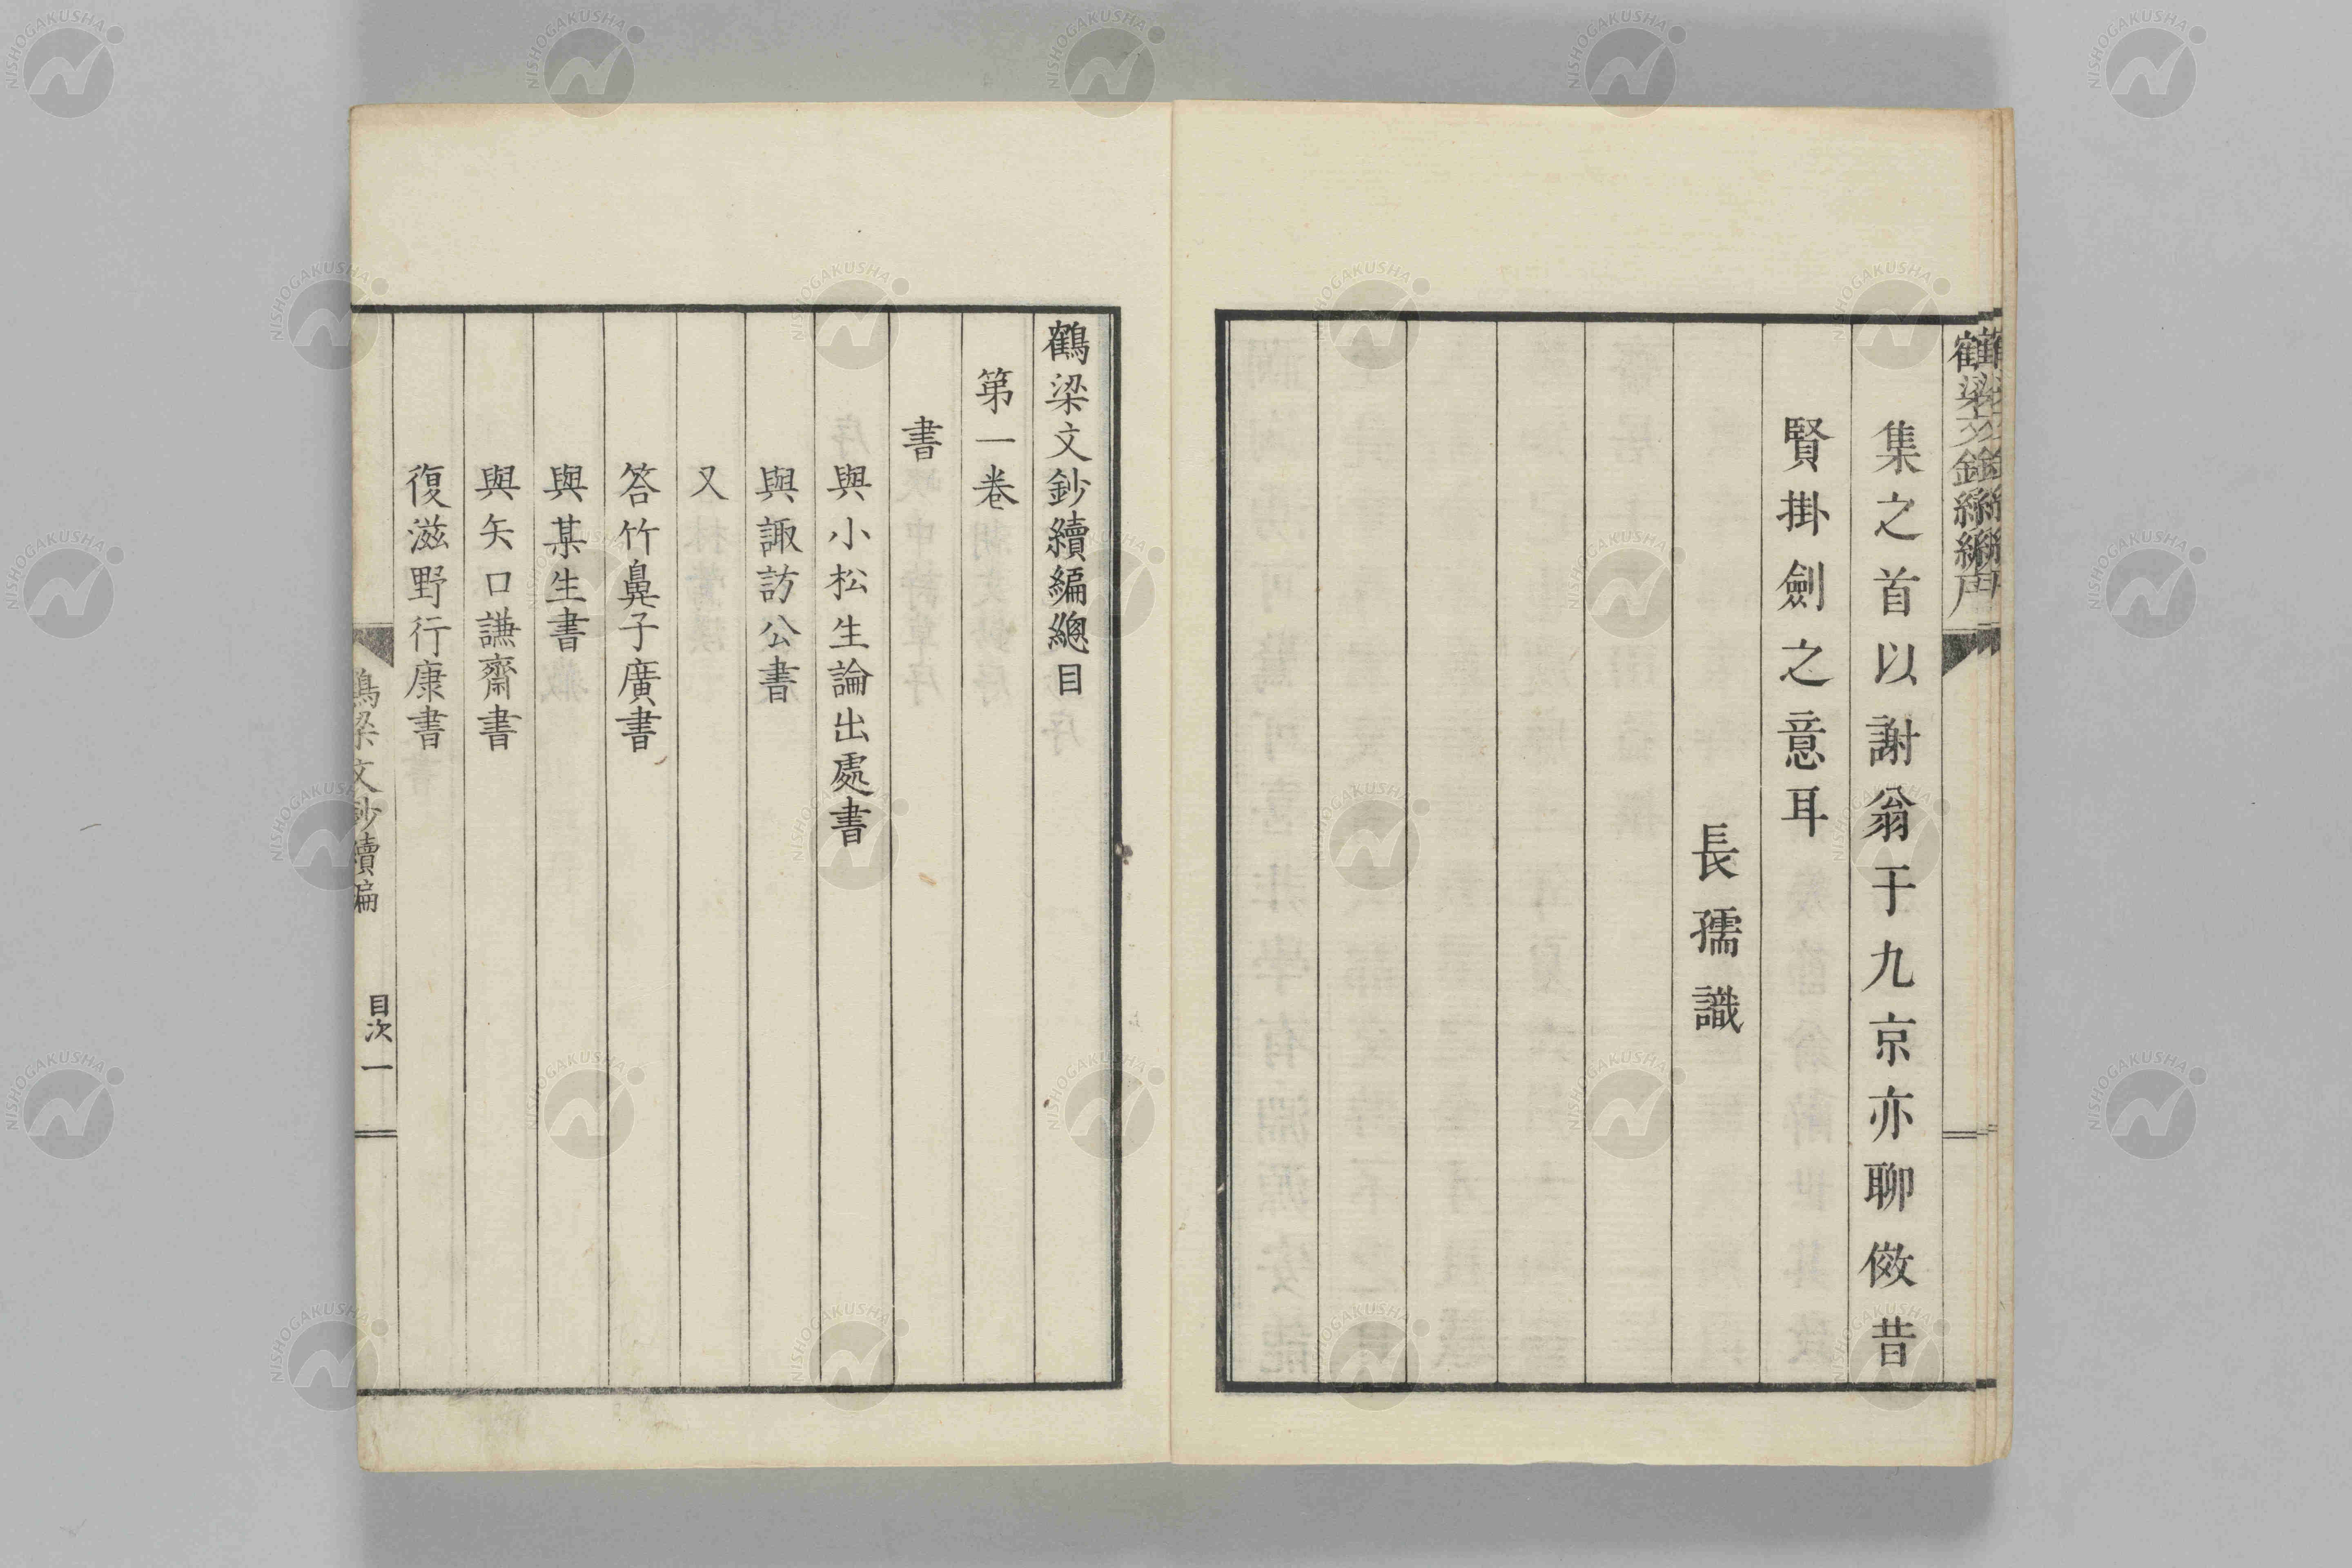 集之首以謝翁于九京亦聊傚昔
賢掛劍之意耳
長孺識
鶴梁文鈔續編總目
第一卷
書
與小松生論出處書
與諏訪公書
又
答竹鼻子廣書
與某生書
與矢口謙齋書
復滋野行康書
鶴梁文鈔續編
目次 一
NISHOGAKUSHA